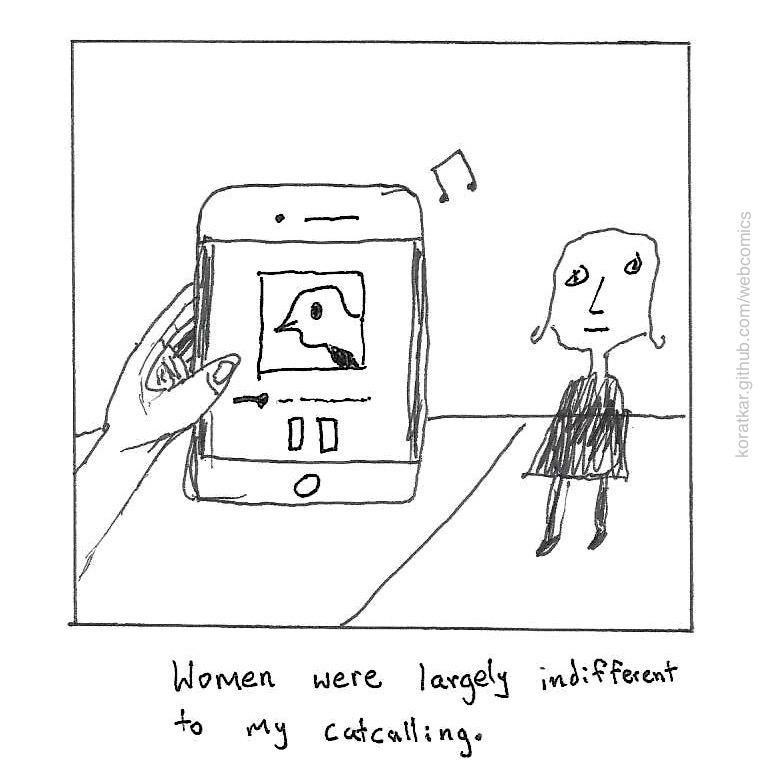 koratkar.github.com/webcomics
Women were largely indifferent
to my catcalling.